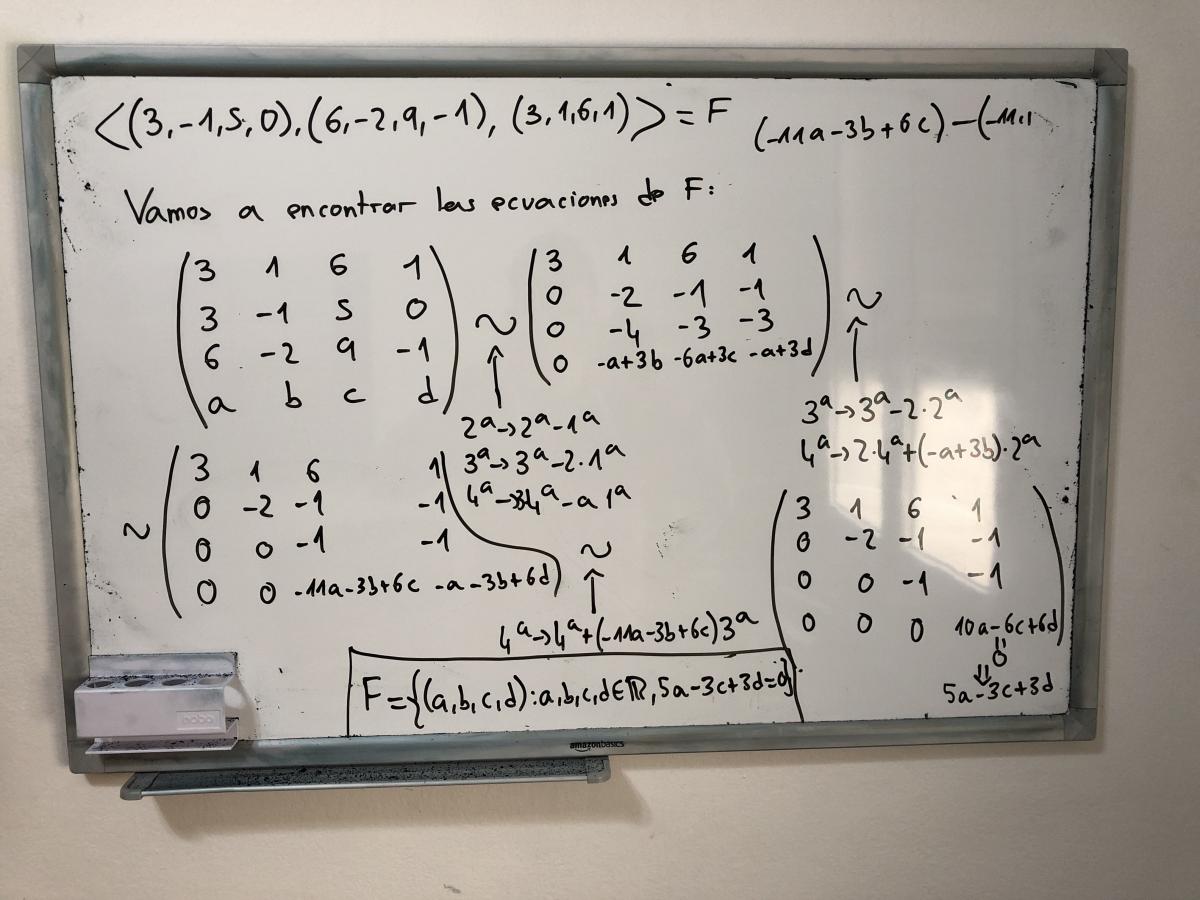 <(3,-1,5,0),(6,-2,9,-1),(3,1,6,1)>=F
(-11a-3b+6c)-(-11.1
Vamos a encontrar las ecuaciones de F:
3 1 6 1
3 -1 5 0
6 -2 9 -1
a b c d
~
2ª→2ª-1ª
3ª→3ª-2·1ª
4ª→34ª-a1ª
3 1 6 1
0 -2 -1 -1
0 -4 -3 -3
0 -a+3b -6a+3c -a+3d
~
3ª→3ª-2·2ª
4ª→2·4ª+(-a+3b)·2ª
~
3 1 6 1
0 -2 -1 -1
0 0 -1 -1
0 0 -11a-3b+6c -a-3b+6d
~
4ª→4ª+(-11a-3b+6c)3ª
3 1 6 1
0 -2 -1 -1
0 0 -1 -1
0 0 0 10a-6c+6d
0
5a-3c+3d
F={(a,b,c,d):a,b,c,d∈ℝ,5a-3c+3d=0}
nobo
amazonbasics